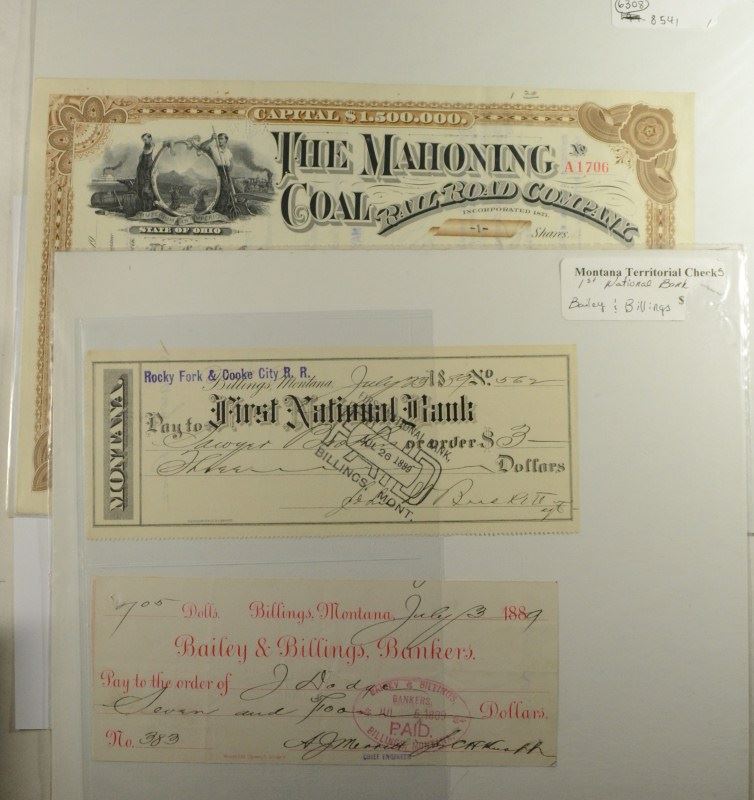 6308
8541
CAPITAL $1,500,000.
THE MAHONING
COAL RAIL ROAD COMPANY
No
A1706
INCORPORATED 1871.
STATE OF OHIO
-1- Shares.
Montana Territorial Checks
1st National Bank
Bailey & Billings $
Rocky Fork & Cooke City R. R.
Billings, Montana, July 23 1889 No. 562
MONTANA
First National Bank
Pay to Sawyer or order $ 3
Three Dollars
FIRST NATIONAL BANK.
PAID
JUL 26 1889
BILLINGS, MONT.
7 05 Dolls. Billings, Montana, July 3 1889
Bailey & Billings, Bankers.
Pay to the order of J Dodge
Seven and Dollars.
BAILEY & BILLINGS,
BANKERS
PAID
No. 383
CHIEF ENGINEER